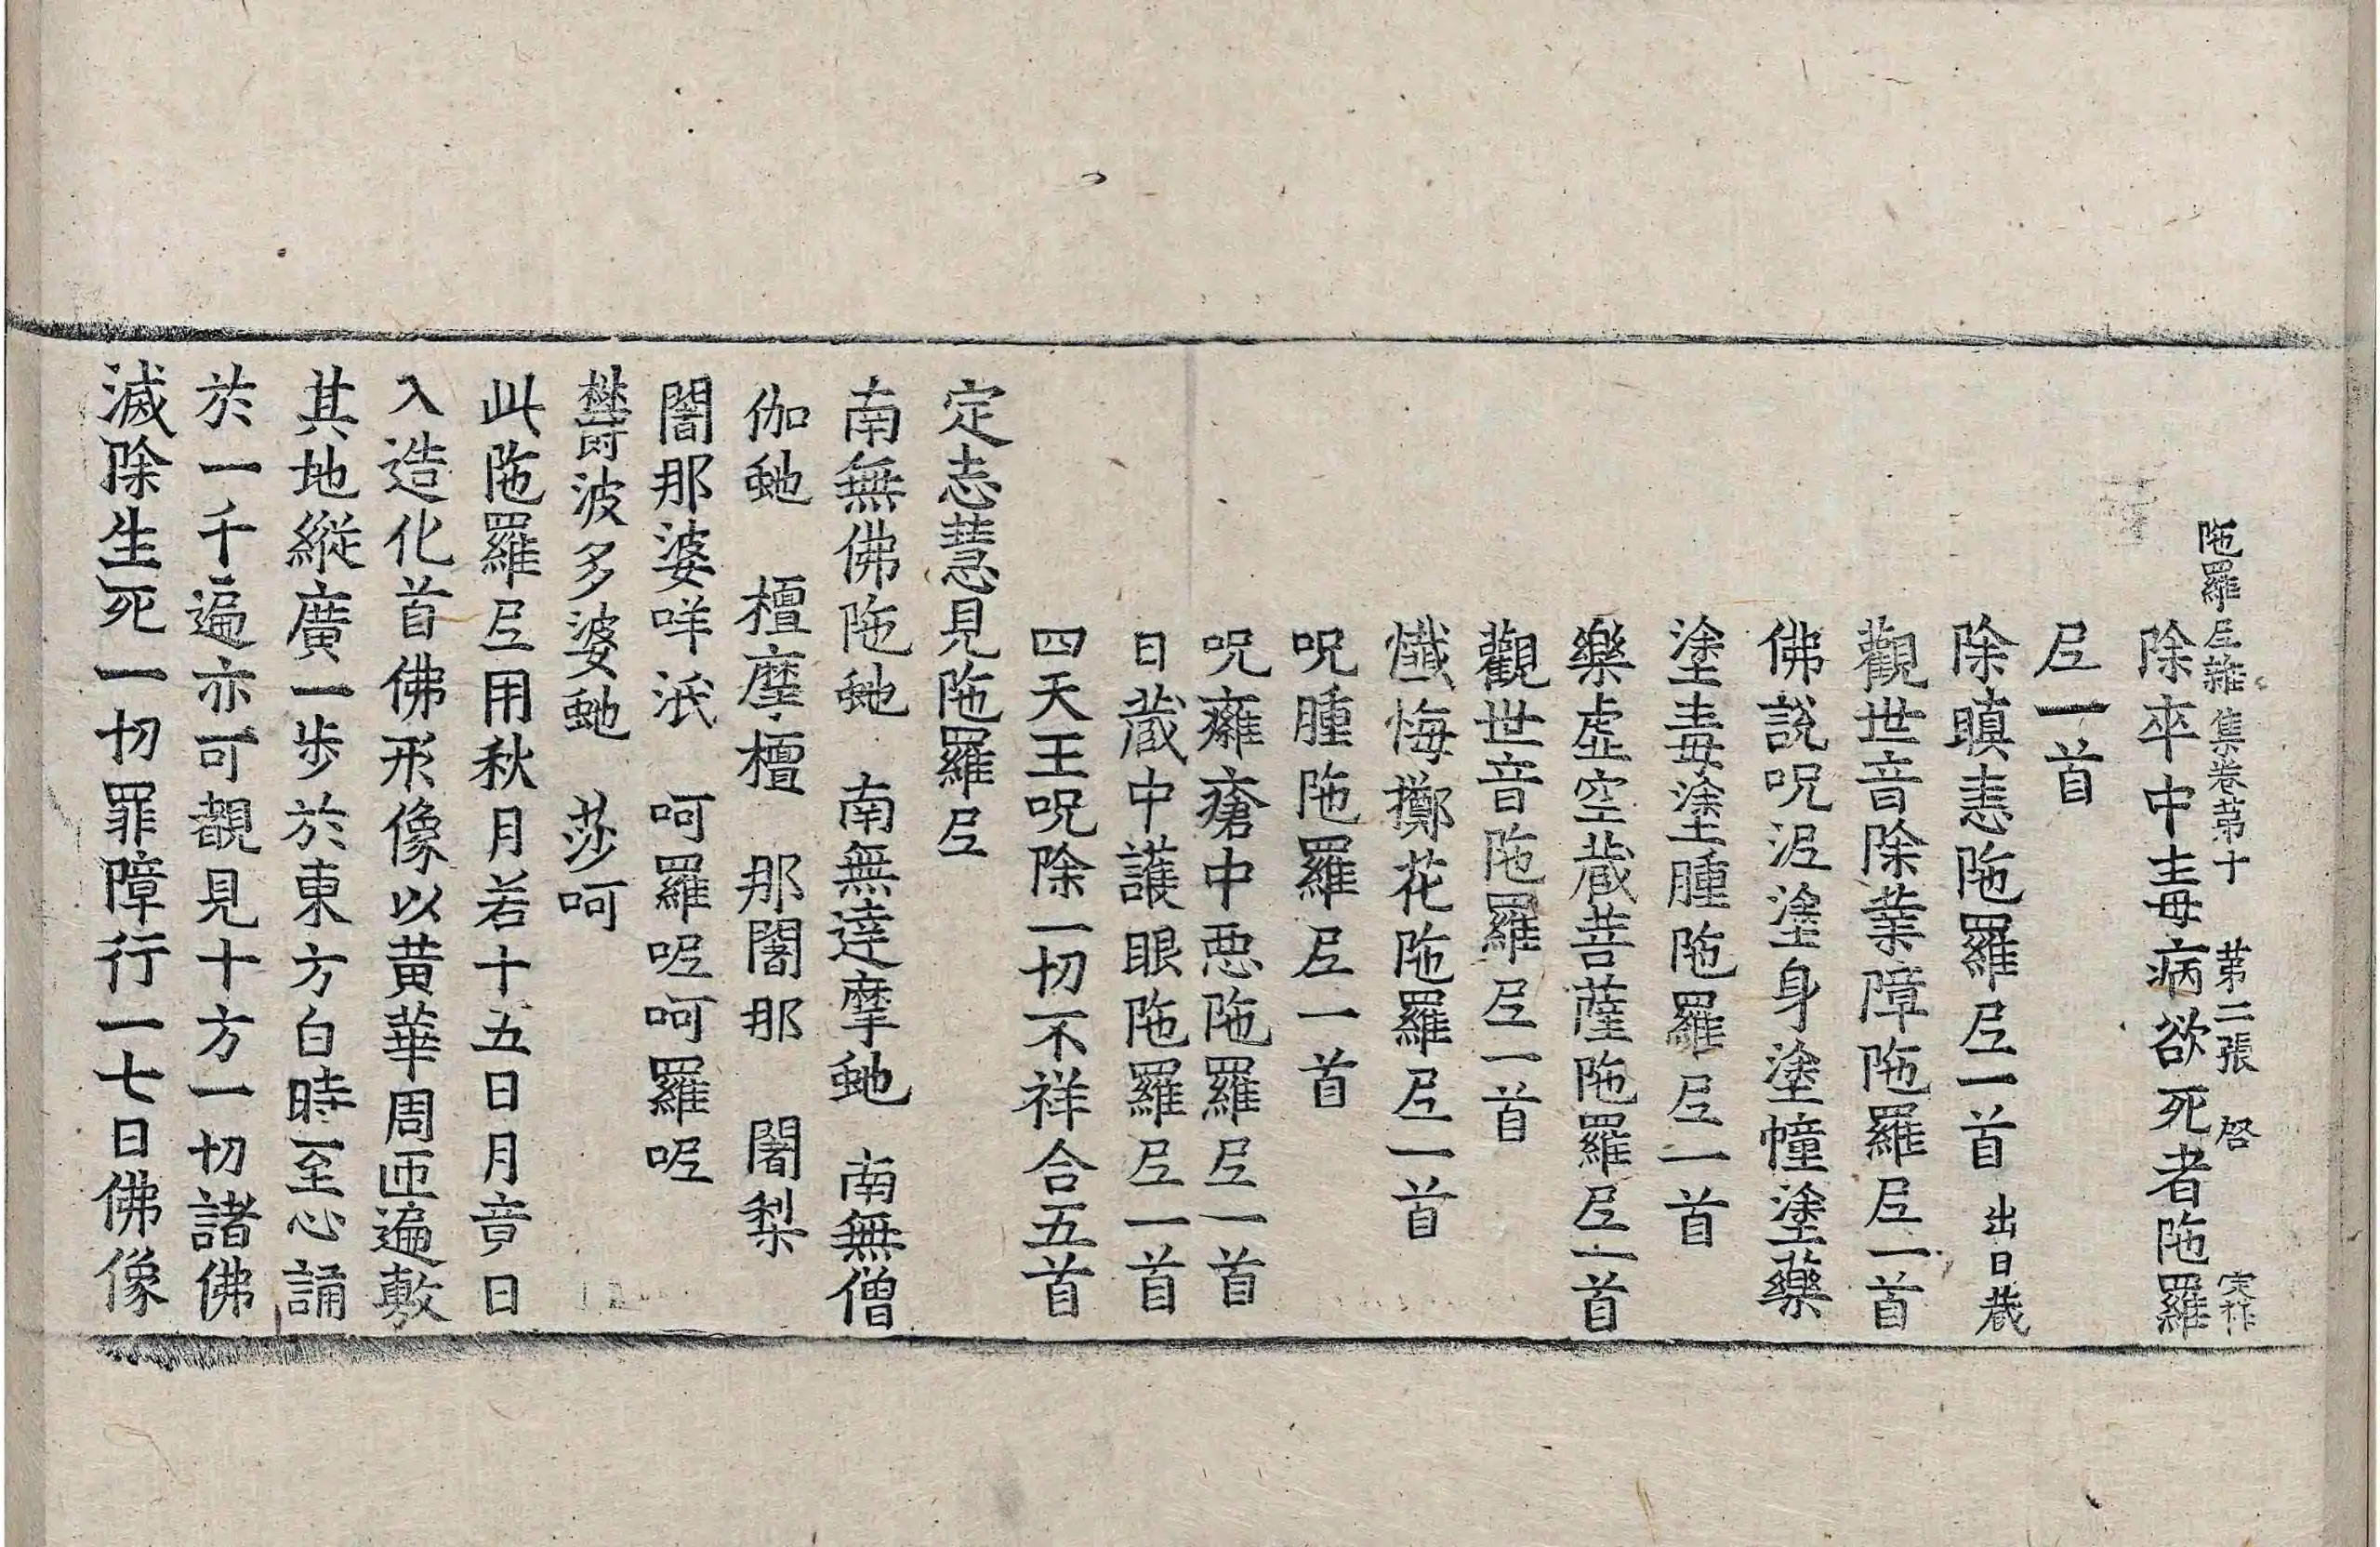 陁羅尼雜集卷第十　第二張　啓
除卒中毒病欲死者陁羅
尼一首
除瞋恚陁羅尼一首 出日藏
觀世音除業障陁羅尼一首
佛說呪泥塗身塗幢塗藥
塗毒塗腫陁羅尼一首
樂虛空藏菩薩陁羅尼一首
觀世音陁羅尼一首
懺悔擲花陁羅尼一首
呪腫陁羅尼一首
呪癰瘡中惡陁羅尼一首
日藏中護眼陁羅尼一首
四天王呪除一切不祥合五首
定志慧見陁羅尼
南無佛陁虵　南無達摩虵　南無僧
伽虵　檀摩檀　那闍那　闍梨
闍那婆咩泜　呵羅呢呵羅呢
欝波多婆虵　莎呵
此陁羅尼用秋月若十五日月竟日
入造化首佛形像以黃華周匝遍敷
其地縱廣一步於東方白時至心誦
於一千遍亦可覩見十方一切諸佛
滅除生死一切罪障行一七日佛像